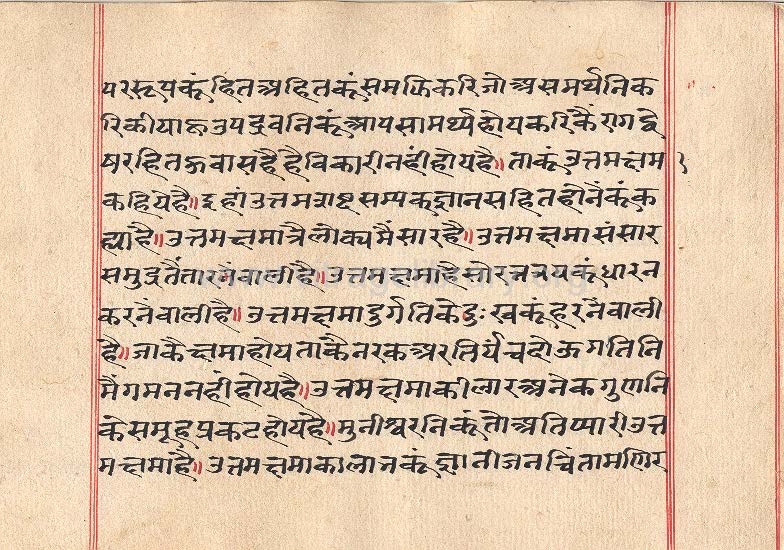 परस्वरूपकूं हित अहितकूं समझिकरि जो असमर्थनिक
रि कीया हूवा उपद्रवनिकूं आप सामर्थ्य होय करिकैं राग द्वे
षरहित हूवा सहै है विकारी नहीं होय है॥ ताकूं उत्तमक्षम
कहिये है॥ इहां उत्तम शब्द सम्यक ज्ञानसहित होनैकूं क
ह्या है॥ उत्तमक्षमा त्रैलोक्यमैं सार है॥ उत्तमक्षमा संसार
समुद्रतैं तारनेंवाली है॥ उत्तमक्षमा है सो रत्नत्रयकूं धारन
करनेंवाली है॥ उत्तमक्षमा दुर्गतिके दुःखकूं हरनेवाली
है॥ जाकै क्षमा होय ताकै नरक अर तिर्यंच दोऊ गतिनि
मैं गमन नहीं होय है॥ उत्तमक्षमा की लार अनेक गुणनि
के समूह प्रकट होय है॥ मुनीश्वरनिकूं तो अति प्यारी उत्त
मक्षमा है॥ उत्तमक्षमाका लाभकूं ज्ञानी जन चिंतामणि र